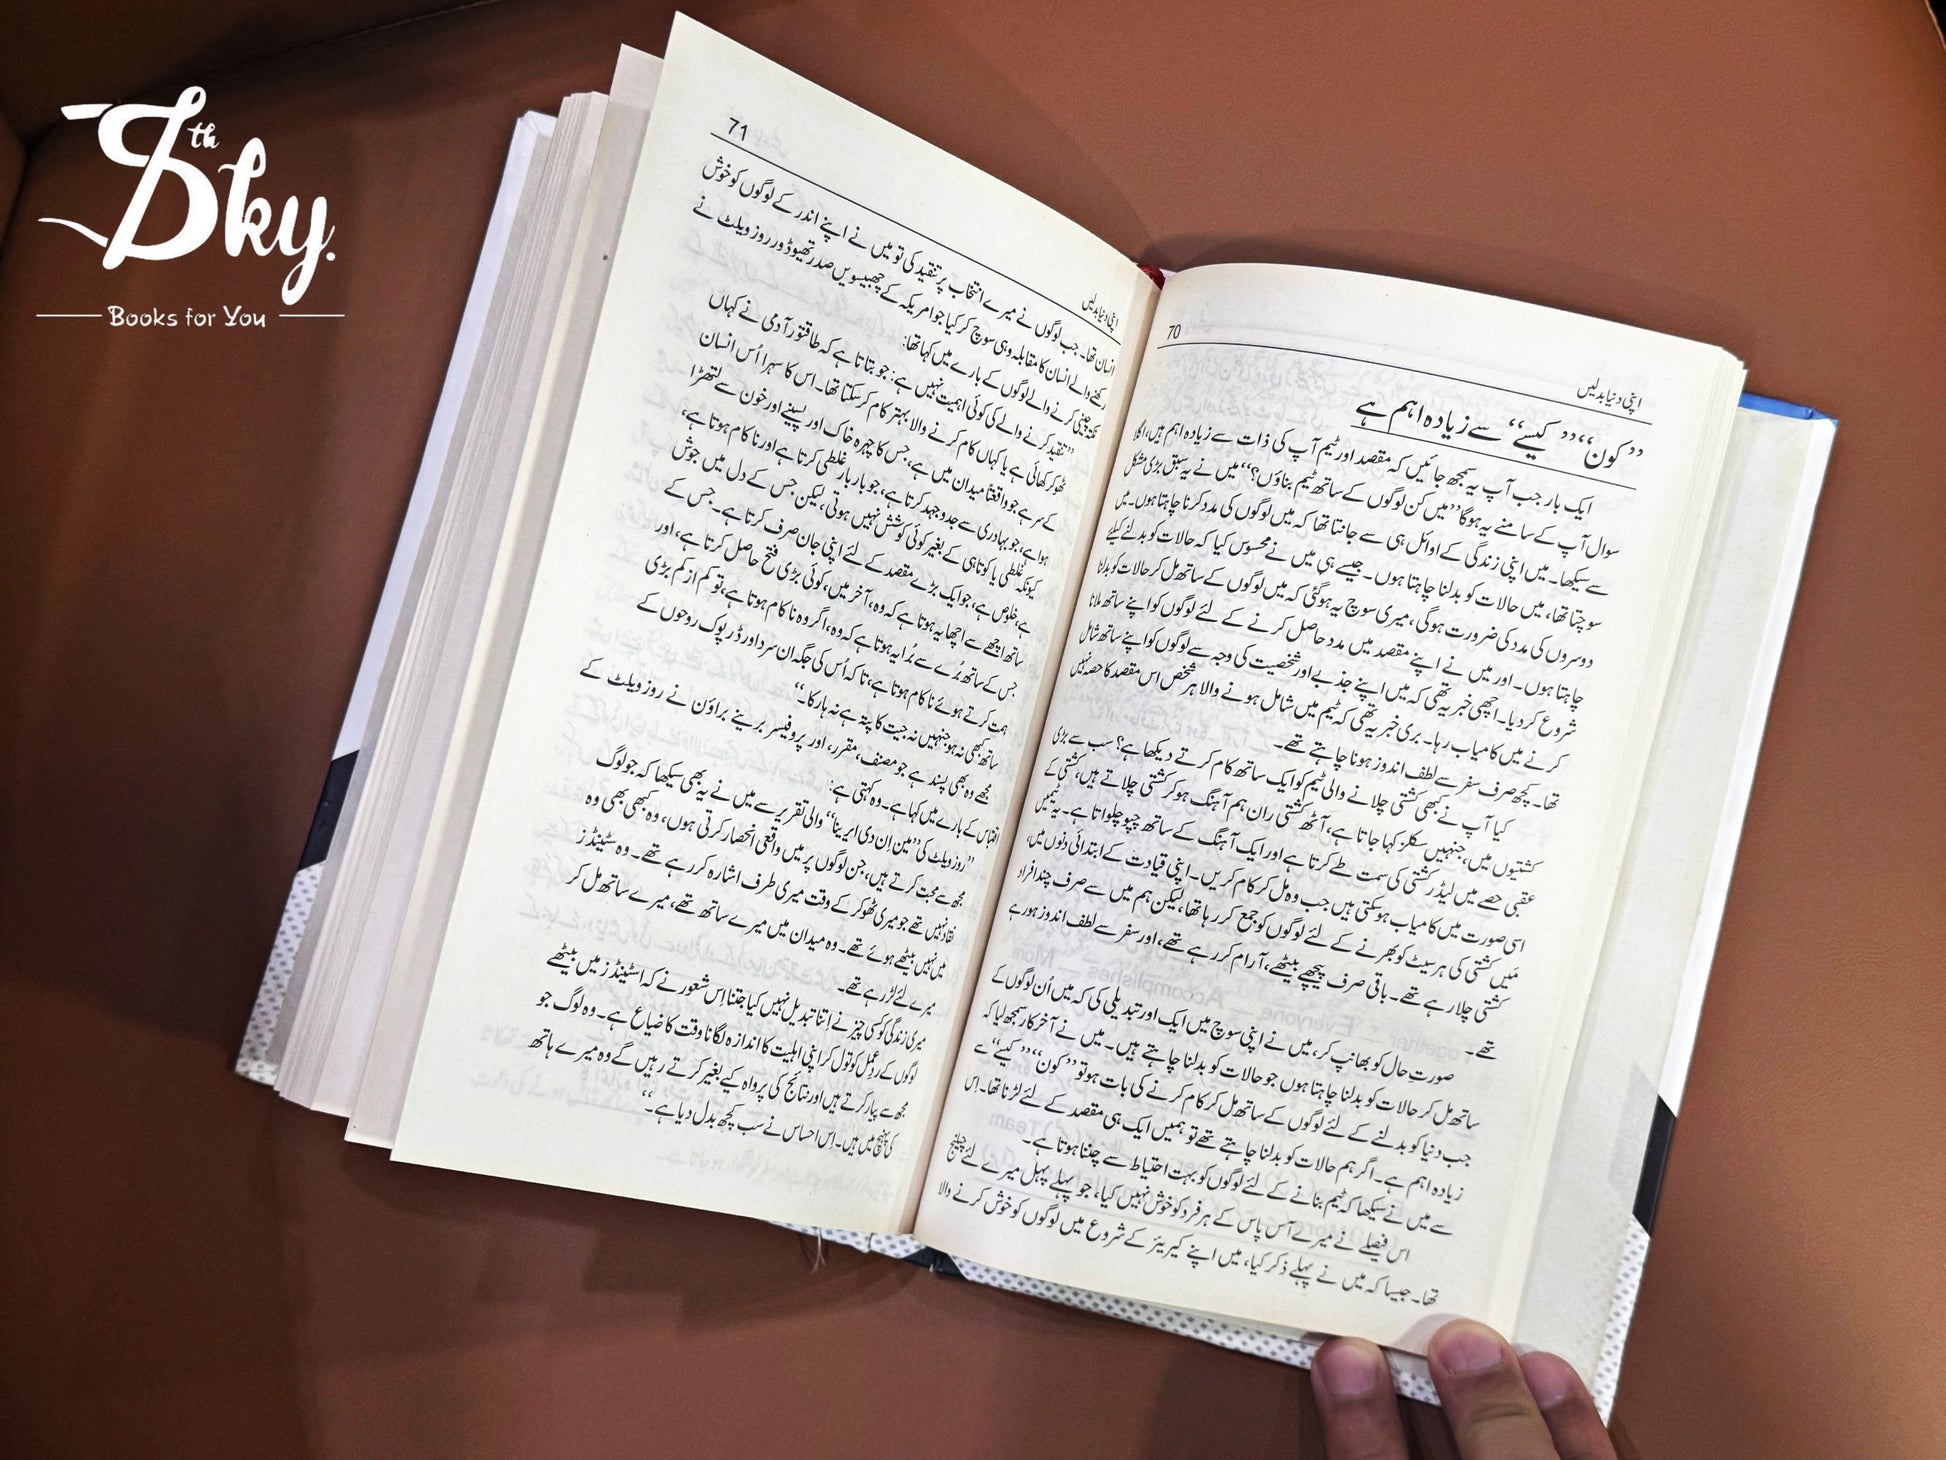 8th Sky.
Books for You
70
اپنی دنیا بدلیں
”کون“ ”کیسے“ سے زیادہ اہم ہے
ایک بار جب آپ یہ سمجھ جائیں کہ مقصد اور ٹیم آپ کی ذات سے زیادہ اہم ہیں، اگلا
سوال آپ کے سامنے یہ ہوگا ”میں کن لوگوں کے ساتھ ٹیم بناؤں؟“ میں نے یہ سبق بڑی مشکل
سے سیکھا۔ میں اپنی زندگی کے اوائل ہی سے جانتا تھا کہ میں لوگوں کی مدد کرنا چاہتا ہوں۔ میں
سوچتا تھا، میں حالات کو بدلنا چاہتا ہوں۔ جیسے ہی میں نے محسوس کیا کہ حالات کو بدلنے کیلئے
دوسروں کی مدد کی ضرورت ہوگی، میری سوچ یہ ہوگئی کہ میں لوگوں کے ساتھ مل کر حالات کو بدلنا
چاہتا ہوں۔ اور میں نے اپنے مقصد میں مدد حاصل کرنے کے لئے لوگوں کو اپنے ساتھ ملانا
شروع کر دیا۔ اچھی خبر یہ تھی کہ میں اپنے جذبے اور شخصیت کی وجہ سے لوگوں کو اپنے ساتھ شامل
کرنے میں کامیاب رہا۔ بری خبر یہ تھی کہ ٹیم میں شامل ہونے والا ہر شخص اس مقصد کا حصہ نہیں
تھا۔ کچھ صرف سفر سے لطف اندوز ہونا چاہتے تھے۔
کیا آپ نے کبھی کشتی چلانے والی ٹیم کو ایک ساتھ کام کرتے دیکھا ہے؟ سب سے بڑی
کشتیوں میں، جنہیں سکلز کہا جاتا ہے، آٹھ کشتی ران ہم آہنگ ہو کر کشتی چلاتے ہیں، کشتی کے
عقبی حصے میں لیڈر کشتی کی سمت طے کرتا ہے اور ایک آہنگ کے ساتھ چپو چلواتا ہے۔ یہ ٹیمیں
اسی صورت میں کامیاب ہوسکتی ہیں جب وہ مل کر کام کریں۔ اپنی قیادت کے ابتدائی دنوں میں،
میں کشتی کی ہر سیٹ کو بھرنے کے لئے لوگوں کو جمع کر رہا تھا، لیکن ہم میں سے صرف چند افراد
کشتی چلا رہے تھے۔ باقی صرف پیچھے بیٹھے، آرام کر رہے تھے، اور سفر سے لطف اندوز ہو رہے
تھے۔
صورتِ حال کو بھانپ کر، میں نے اپنی سوچ میں ایک اور تبدیلی کی کہ میں اُن لوگوں کے
ساتھ مل کر حالات کو بدلنا چاہتا ہوں جو حالات کو بدلنا چاہتے ہیں۔ میں نے آخر کار سمجھ لیا کہ
جب دنیا کو بدلنے کے لئے لوگوں کے ساتھ مل کر کام کرنے کی بات ہو تو ”کون“ ”کیسے“ سے
زیادہ اہم ہے۔ اگر ہم حالات کو بدلنا چاہتے تھے تو ہمیں ایک ہی مقصد کے لئے لڑنا تھا۔ اِس
سے میں نے سیکھا کہ ٹیم بنانے کے لئے لوگوں کو بہت احتیاط سے چننا ہوتا ہے۔
اس فیصلے نے میرے آس پاس کے ہر فرد کو خوش نہیں کیا، جو پہلے پہل میرے لئے چیلنج
تھا۔ جیسا کہ میں نے پہلے ذکر کیا، میں اپنے کیریئر کے شروع میں لوگوں کو خوش کرنے والا
71
اپنی دنیا بدلیں
انسان تھا۔ جب لوگوں نے میرے انتخاب پر تنقید کی تو میں نے اپنے اندر کے لوگوں کو خوش
رکھنے والے انسان کا مقابلہ وہی سوچ کر کیا جو امریکہ کے چھبیسویں صدر تھیوڈور روزویلٹ نے
نکتہ چینی کرنے والے لوگوں کے بارے میں کہا تھا:
”تنقید کرنے والے کی کوئی اہمیت نہیں ہے: جو بتاتا ہے کہ طاقتور آدمی نے کہاں
ٹھوکر کھائی ہے یا کہاں کام کرنے والا بہتر کام کر سکتا تھا۔ اس کا سہرا اُس انسان
کے سر ہے جو واقعتاً میدان میں ہے، جس کا چہرہ خاک اور پسینے اور خون سے لتھڑا
ہوا ہے، جو بہادری سے جدوجہد کرتا ہے، جو بار بار غلطی کرتا ہے اور ناکام ہوتا ہے،
کیونکہ غلطی یا کوتاہی کے بغیر کوئی کوشش نہیں ہوتی، لیکن جس کے دل میں جوش
ہے، خلوص ہے، جو ایک بڑے مقصد کے لئے اپنی جان صرف کرتا ہے۔ جس کے
ساتھ اچھے سے اچھا یہ ہوتا ہے کہ وہ، آخر میں، کوئی بڑی فتح حاصل کرتا ہے، اور
جس کے ساتھ بُرے سے بُرا یہ ہوتا ہے کہ وہ، اگر وہ ناکام ہوتا ہے، تو کم از کم بڑی
ہمت کرتے ہوئے ناکام ہوتا ہے، تاکہ اُس کی جگہ ان سرد اور ڈرپوک روحوں کے
ساتھ کبھی نہ ہو جنہیں نہ جیت کا پتہ ہے نہ ہار کا۔“
مجھے وہ بھی پسند ہے جو مصنف، مقرر، اور پروفیسر برینے براؤن نے روزویلٹ کے
اقتباس کے بارے میں کہا ہے۔ وہ کہتی ہے:
”روزویلٹ کی ”مین اِن دی ایرینا“ والی تقریر سے میں نے یہ بھی سیکھا کہ جو لوگ
مجھ سے محبت کرتے ہیں، جن لوگوں پر میں واقعی انحصار کرتی ہوں، وہ کبھی بھی وہ
نقاد نہیں تھے جو میری ٹھوکر کے وقت میری طرف اشارہ کر رہے تھے۔ وہ سٹینڈز
میں نہیں بیٹھے ہوئے تھے۔ وہ میدان میں میرے ساتھ تھے، میرے ساتھ مل کر
میرے لئے لڑ رہے تھے۔
میری زندگی کو کسی چیز نے اتنا تبدیل نہیں کیا جتنا اِس شعور نے کہ اسٹینڈز میں بیٹھے
لوگوں کے ردِعمل کو تول کر اپنی اہلیت کا اندازہ لگانا وقت کا ضیاع ہے۔ وہ لوگ جو
مجھ سے پیار کرتے ہیں اور نتائج کی پرواہ کیے بغیر کرتے رہیں گے وہ میرے ہاتھ
کی پہنچ میں ہیں۔ اس احساس نے سب کچھ بدل دیا ہے۔“